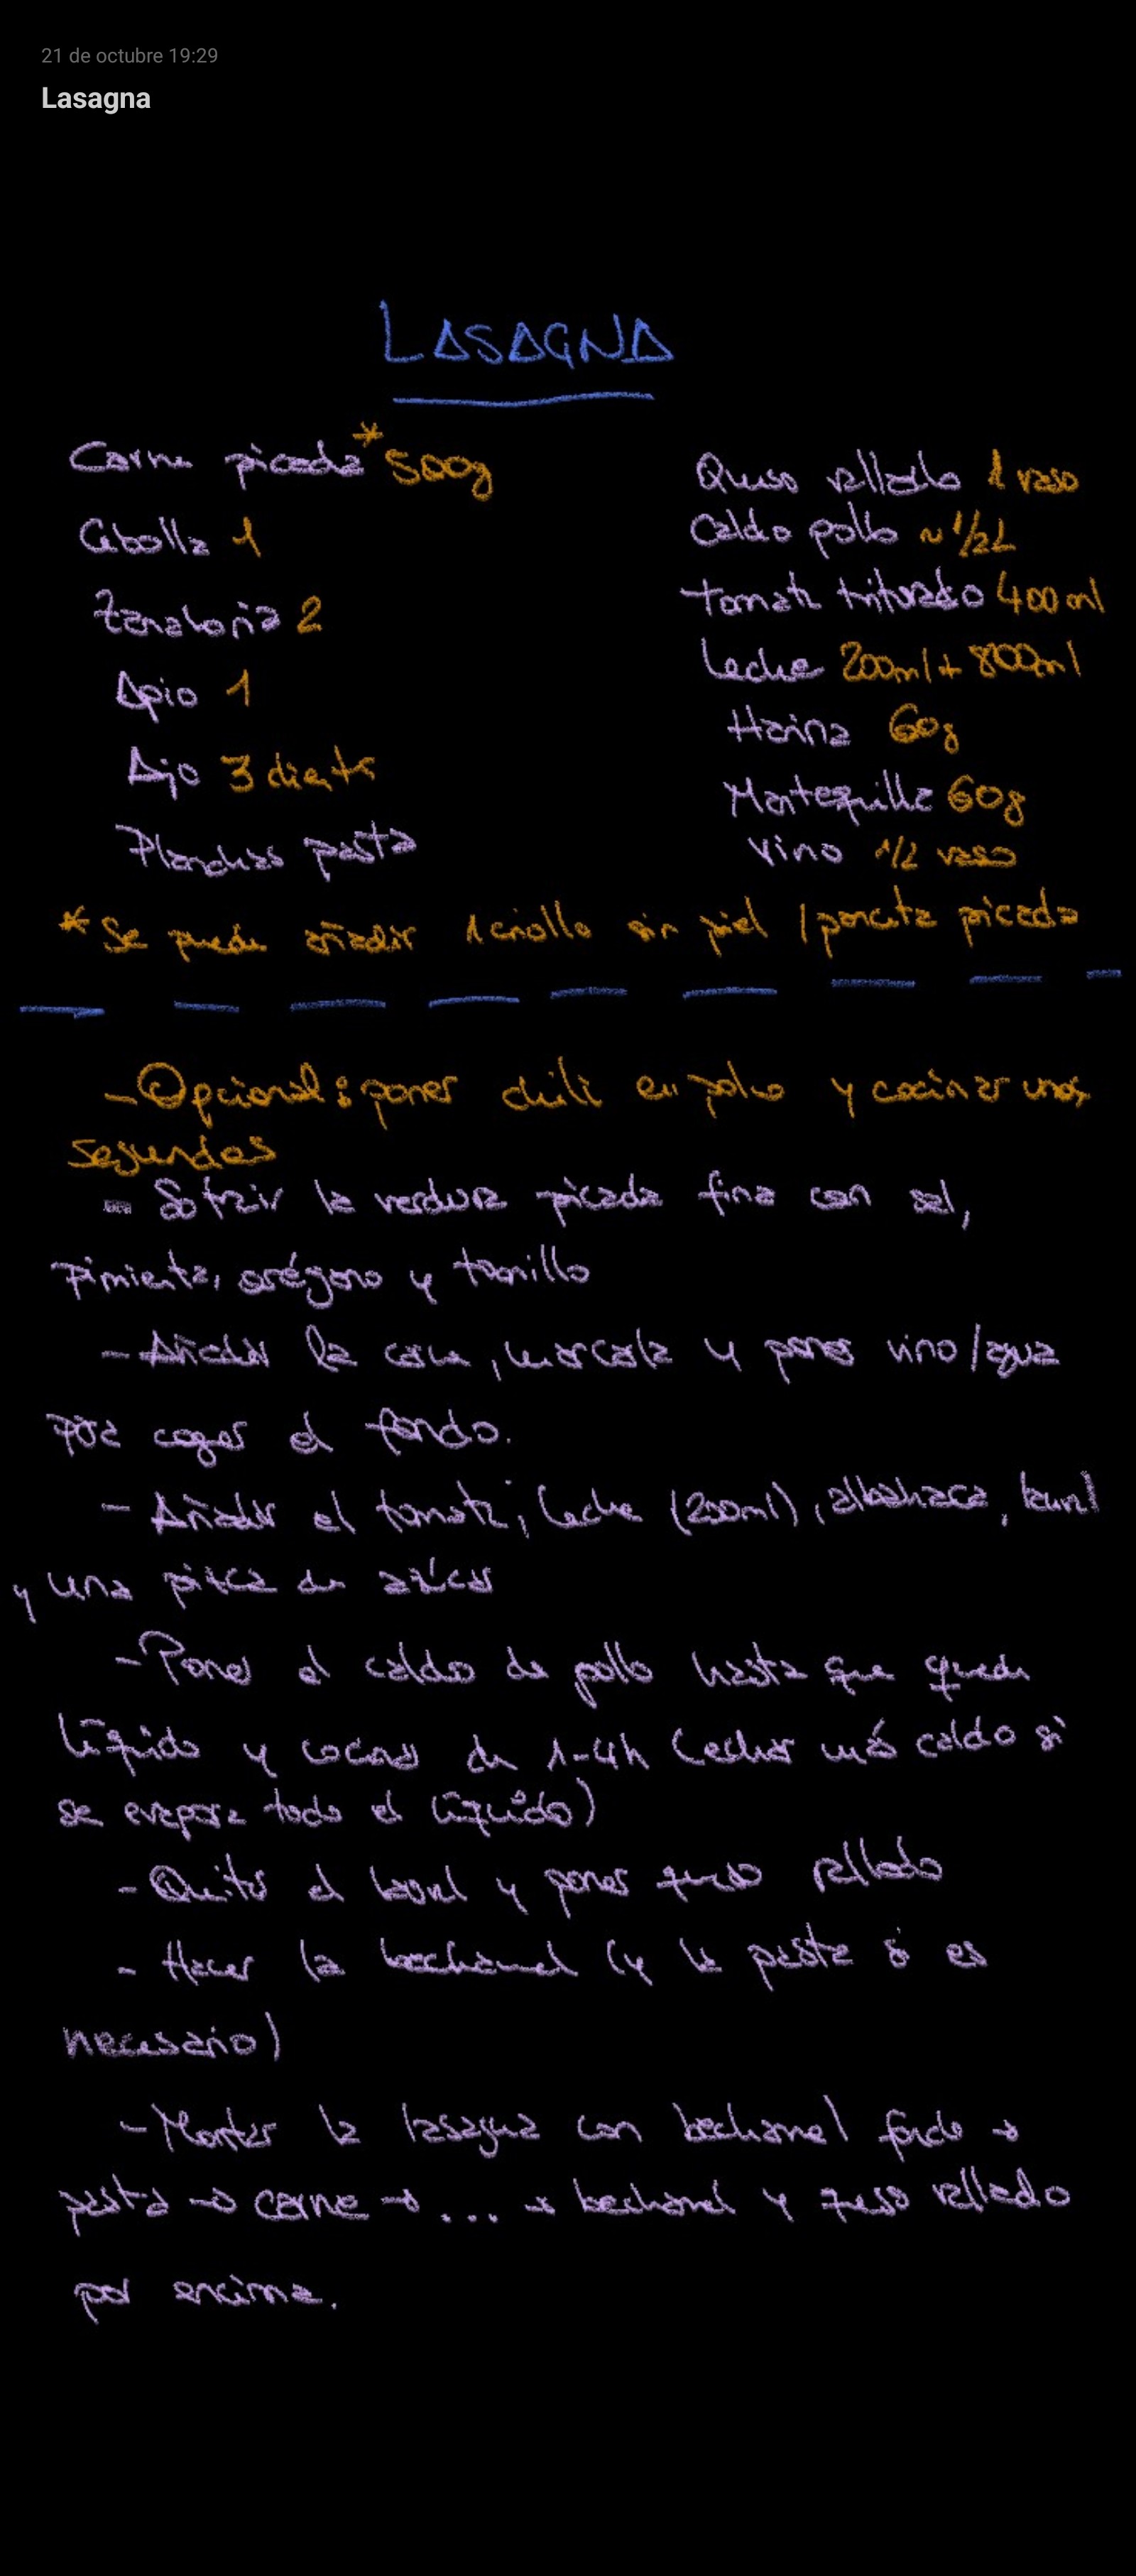 21 de octubre 19:29
Lasagna
LASAGNA
Carne picada* 500g
Cebolla 1
Zanahoria 2
Apio 1
Ajo 3 dientes
Planchas pasta
Queso rallado 1 vaso
Caldo pollo ~ 1/2L
Tomate triturado 400ml
Leche 200ml + 800ml
Harina 60g
Mantequilla 60g
Vino 1/2 vaso
* Se puede añadir 1 criollo sin piel / panceta picada
- Opcional: poner chili en polvo y cocinar unos
segundos
- Sofreír la verdura picada fina con sal,
pimienta, orégano y tomillo
- Añadir la carne, marcarla y poner vino/agua
para coger el fondo.
- Añadir el tomate, leche (200ml), albahaca, laurel
y una pizca de azúcar
- Poner el caldo de pollo hasta que quede
líquido y cocinar de 1-4h (echar más caldo si
se evapora todo el líquido)
- Quitar el laurel y poner queso rallado
- Hacer la bechamel (y la pasta si es
necesario)
- Montar la lasagna con bechamel fondo →
pasta → carne → ... → bechamel y queso rallado
por encima.